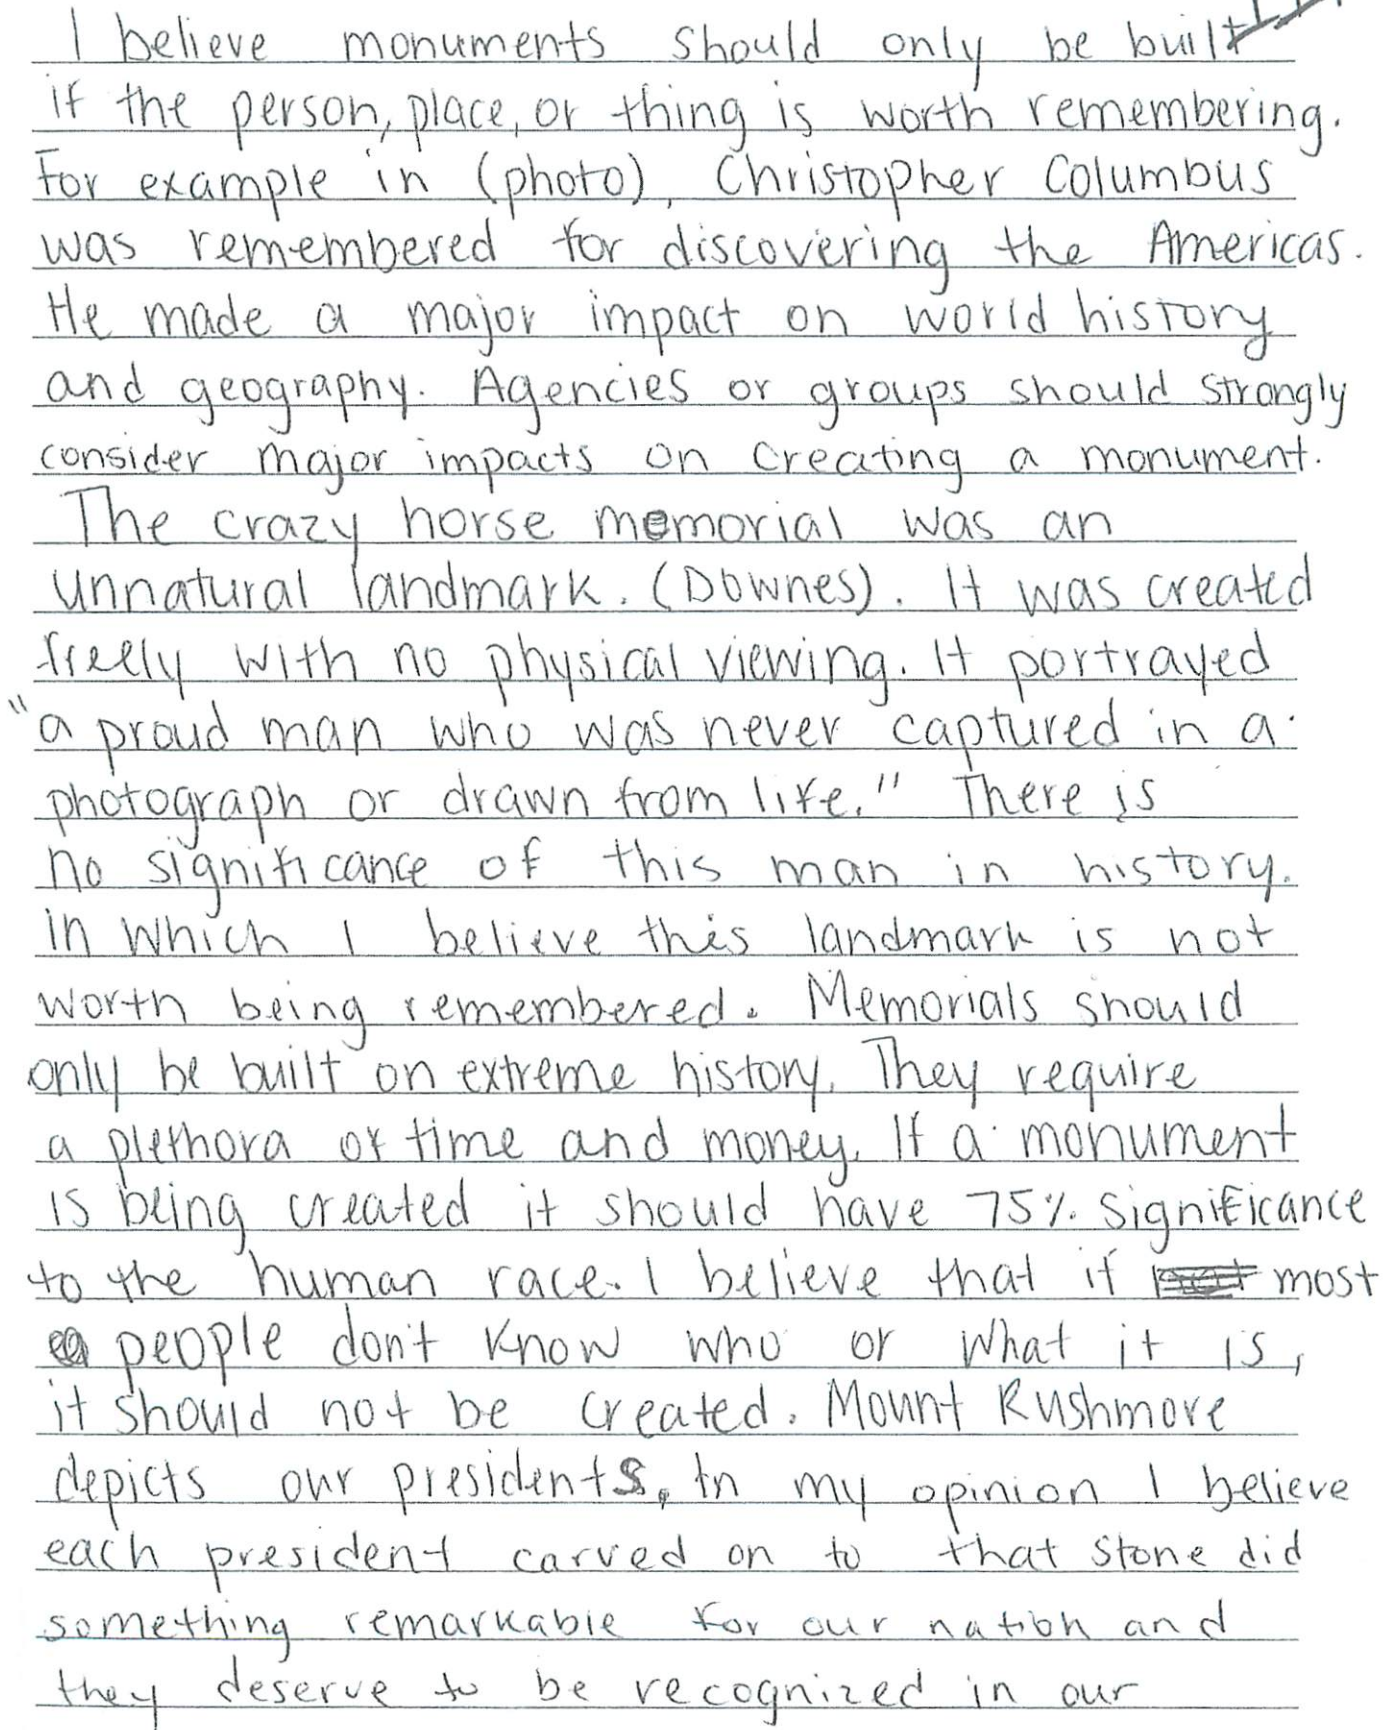 I believe monuments should only be built
if the person, place, or thing is worth remembering.
For example in (photo), Christopher Columbus
was remembered for discovering the Americas.
He made a major impact on world history
and geography. Agencies or groups should strongly
consider major impacts on creating a monument.
The crazy horse memorial was an
unnatural landmark. (Downes). It was created
freely with no physical viewing. It portrayed
"a proud man who was never captured in a
photograph or drawn from life." There is
no significance of this man in history.
in which I believe this landmark is not
worth being remembered. Memorials should
only be built on extreme history. They require
a plethora of time and money. If a monument
is being created it should have 75% significance
to the human race. I believe that if most
people don't know who or what it is,
it should not be created. Mount Rushmore
depicts our presidents. In my opinion I believe
each president carved on to that stone did
something remarkable for our nation and
they deserve to be recognized in our